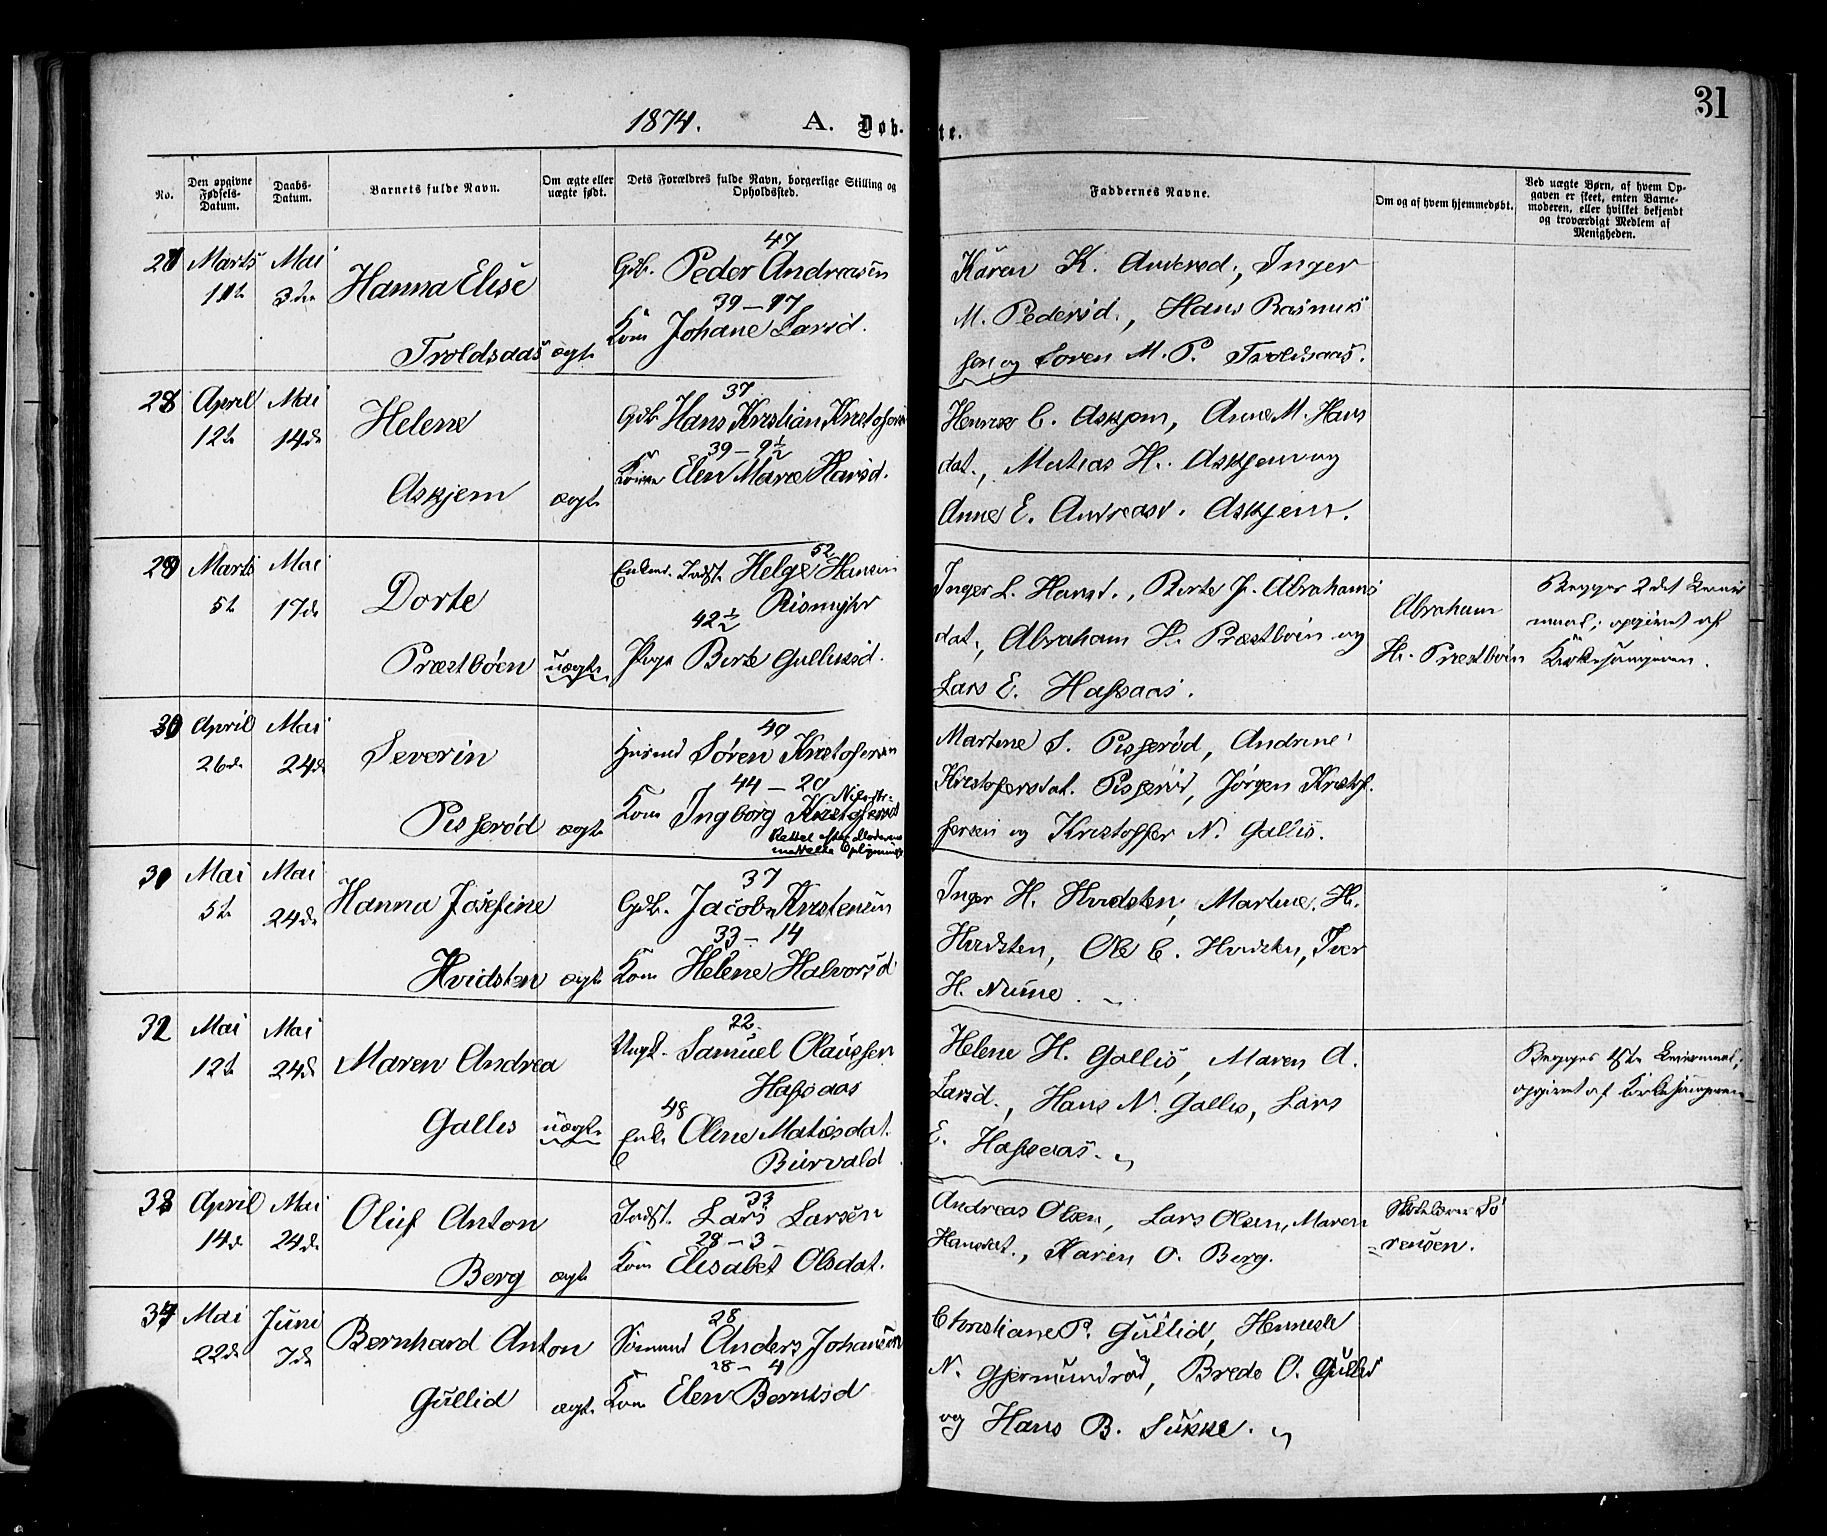 1874. A. Døb-
te.
31
No.
Den opgivne Fødsels-Datum.
Daabs-Datum.
Barnets fulde Navn.
Om ægte eller uægte født.
Dets Forældres fulde Navn, borgerlige Stilling og Opholdssted.
Faddernes Navne.
Om og af hvem hjemmedøbt.
Ved uægte Børn, af hvem Op-
gaven er skeet, enten Barne-
moderen, eller hvilket bekjendt
og troværdigt Medlem af
Menigheden.
27 Marts Mai
11te 3die
Hanna Elise
Troldsaas ægte
47
Gdb. Peder Andreasen
39 - 17
Kone Johane Larsd.
Karen K. Andersd., Inger
M. Pedersd., Hans Rasmus
sen og Soren M. P. Troldsaas.
28 April Mai
12te 14de
Helene
Askjem ægte
37
Gdb Hans Kristian Kristofersen
39 - 9½
Kone Elen Marie Hansd.
C. Askjem, Anne M. Hans
dat., Matias H. Askjem og
Anne E. Andreasd. Askjem.
29 Marts Mai
5te 17de
Dorte
Præstbøen uægte
52
Enkem. Indst. Helge Hansen
42½
Pige Berte Gulliksd.
Inger L. Hansd., Berte J. Abrahams
dat., Abraham H. Præstbøen og
Lars E. Hafsaas.
Abraham
H. Præstbøen
Begges 2det Leier
maal; opgivet af
Kirkesangeren.
30 April Mai
26de 24de
Severin
Pisserød ægte
49
Husmd Søren Kristofersen
44 - 20
Kone Ingborg Kristofersd
Rettet efter Moderens
Martine S. Pisserød, Andrine
Kristofersdat. Pisserød, Jørgen Kristof-
fersen og Kristoffer N. Gallis.
31 Mai Mai
5te 24de
Hanna Josefine
Hvidsten ægte
37
Gdb. Jacob Kristensen
33 - 14
Kone Helene Halvorsd
Inger H. Hvidsten, Martine H.
Hvidsten, Ole C. Hvidsten, Iver
H. Nume.
32 Mai Mai
12te 24de
Maren Andrea
Gallis uægte
22
Ungk. Samuel Olaussen
Hafsaas
48
Enke Oline Matisdat.
Burvald
Helene H. Gallis, Maren A.
Larsd., Hans N. Gallis, Lars
E. Hafsaas.
Begges 1ste Leiermaal;
opgivet af Kirkesangeren
33 April Mai
14de 24de
Oluf Anton
Berg ægte
33
Indst. Lars Larsen
28 - 3
Kone Elisabet Olsdat.
Andreas Olsen, Lars Olsen, Maren
Hansdat., Karen O. Berg.
Skolelærer Sø
rensen.
34 Mai Juni
22de 7de
Bernhard Anton
Gullid ægte
28
Sømand Anders Johansen
28 - 4
Kone Elen Berntsd
Christiane P. Gullid,
N. Gjermundrød, Brede O. Gullid
og Hans B. Sukke.